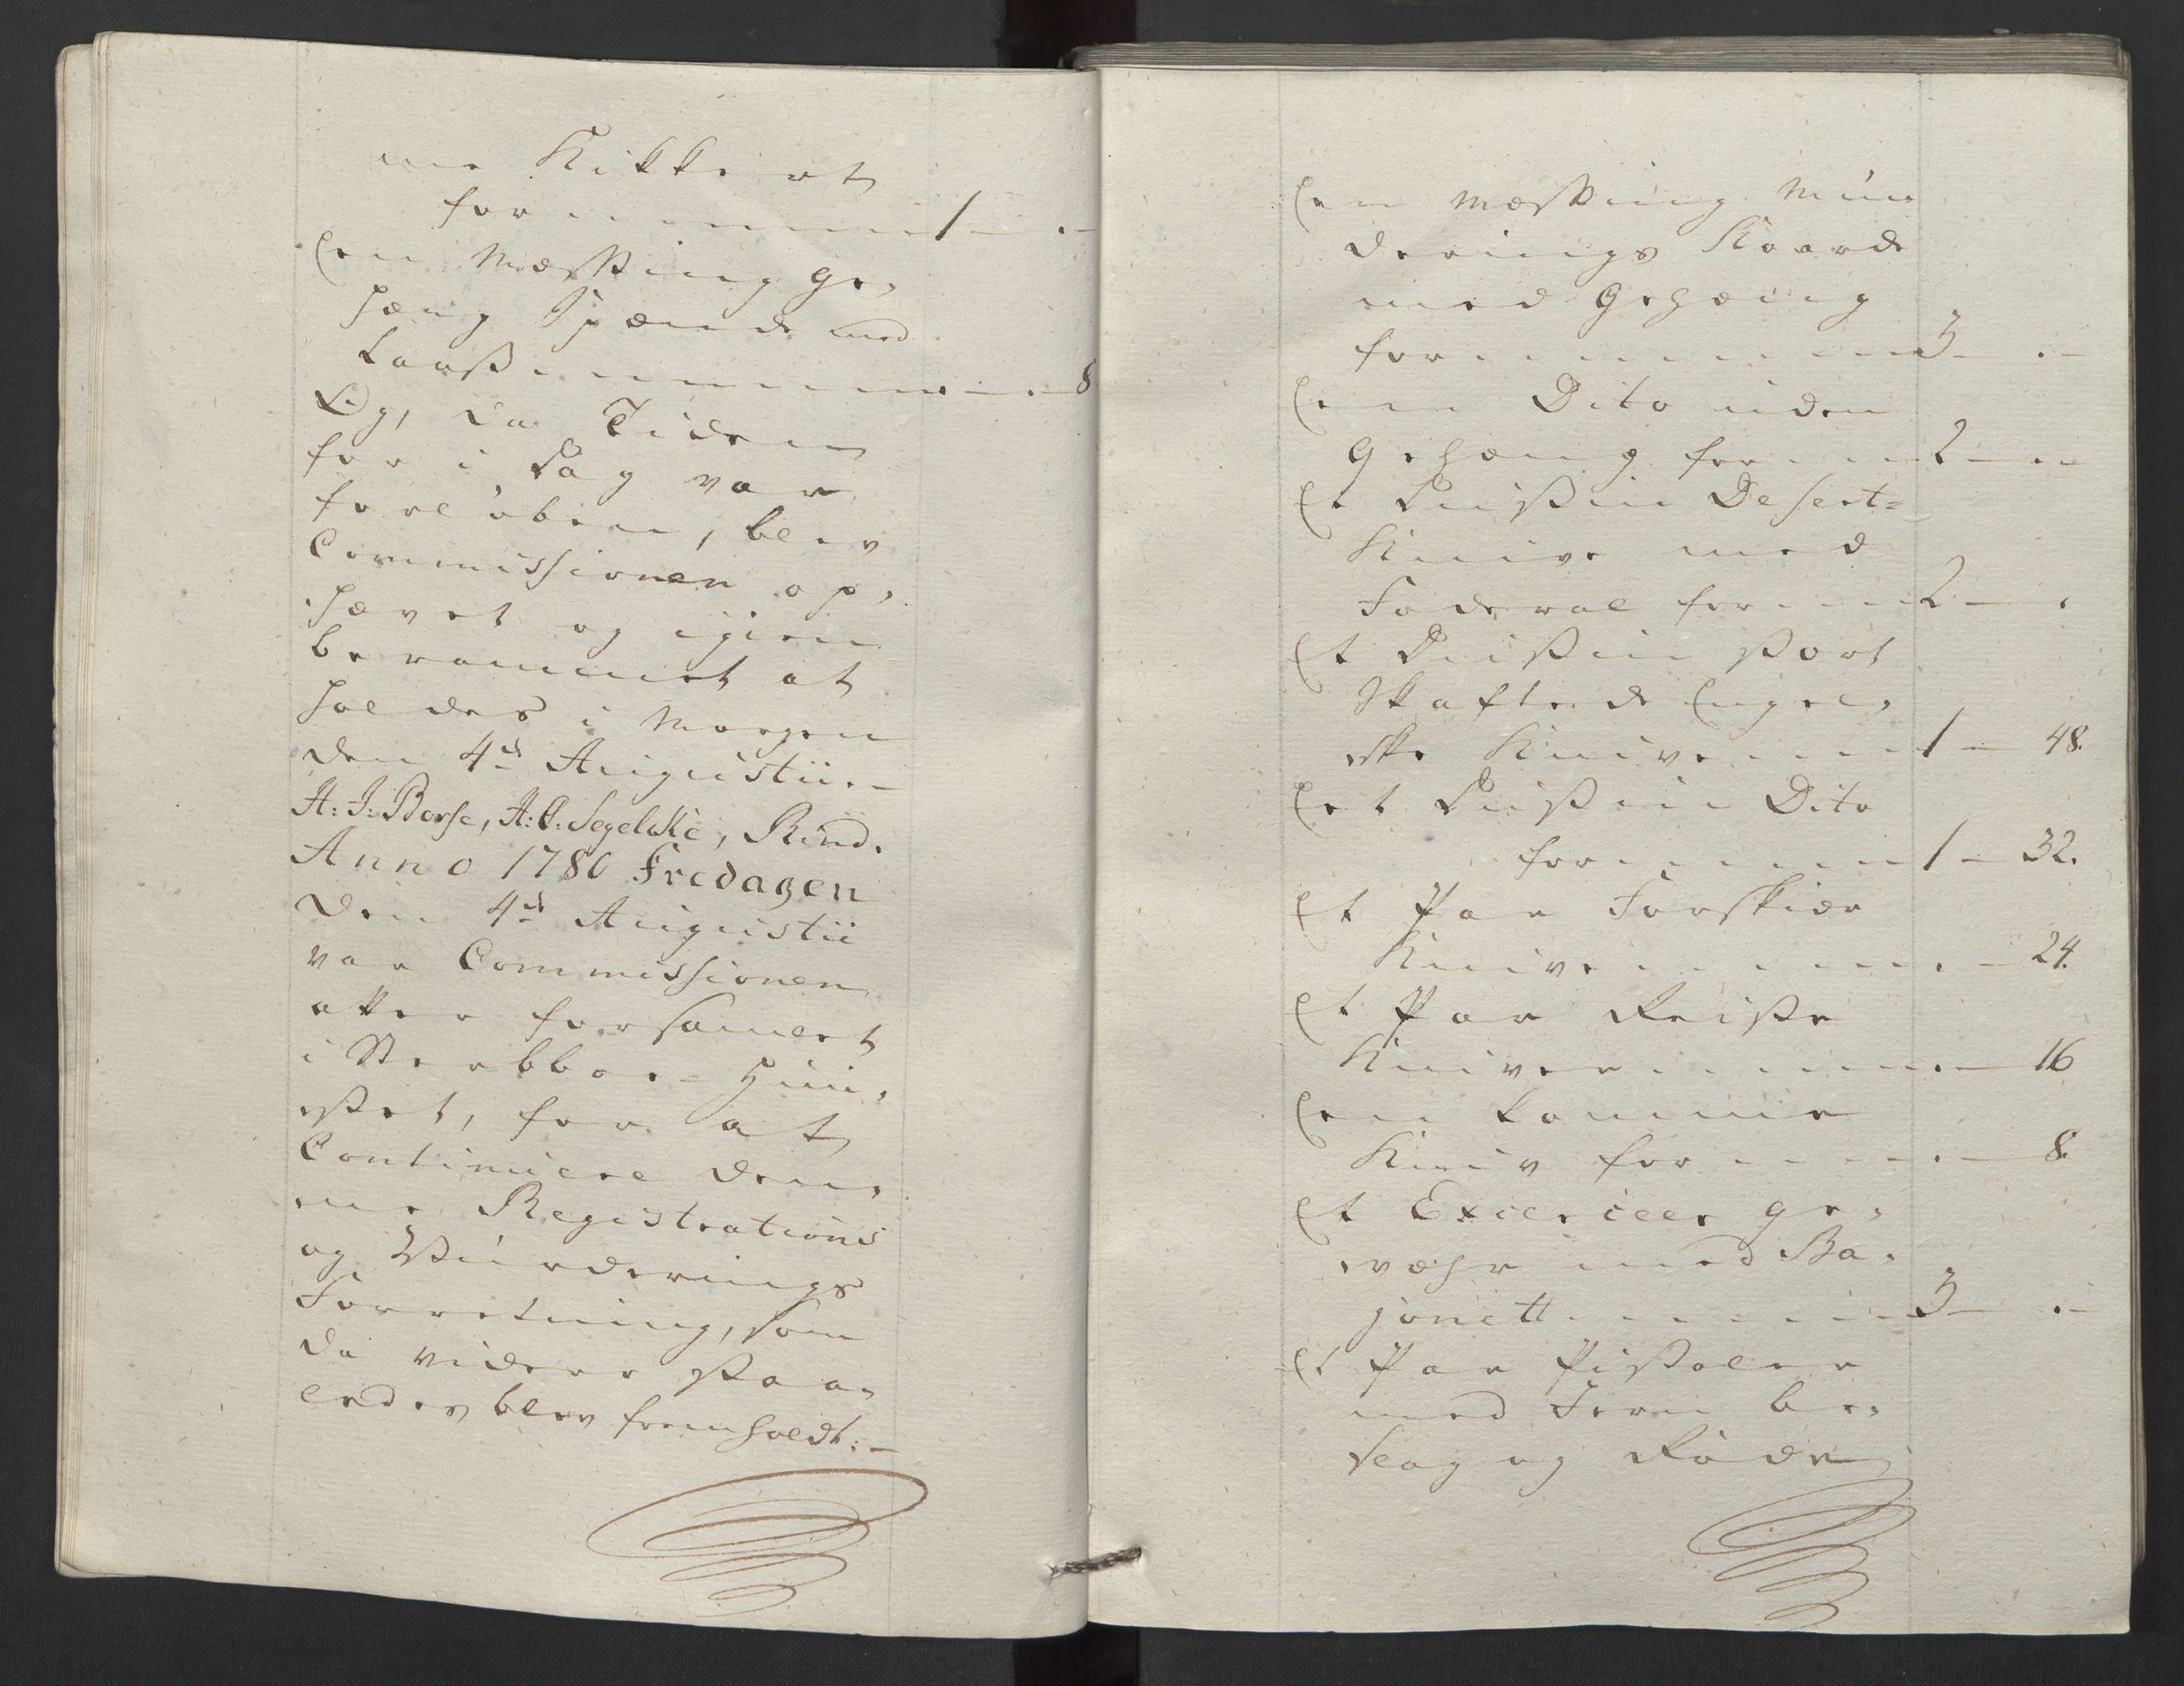 ne Kikkert
for - - - - - - 1 - . -
Een Messing Ge-
hæng Spænde med
Laaß - - - - - - . - 8
Og, da Tiden
for i Dag var
forløben, blev
Commissionen op-
hævet og igien
berammet at
holdes i Morgen
den 4de Augustii. -
A: J: Borse, A: O: Segelcke, Rind.
Anno 1780 Fredagen
Den 4de Augustii
var Commissionen
atter forsamlet
i Sterbboe-Huu-
set, for at
Continuere den-
ne Registrations
og Vurderings
Forretning, som
da videre staa-
ledes blev fremholdt: -
Een Messing Mun-
derings Kaarde
med Gehæng
for - - - - - - 3 - . -
Een Dito uden
Gehæng for - - 2 - . -
Et Dusin Desert-
Knive med
Foderal for - - 2 - .
Et Dusin sort
Skaftede Engel-
ske Knive - - - 1 - 48.
Et Dusin Dito
for - - - - - 1 - 32.
Et Par Forskiær
Knive - - - - - . - 24.
Et Par Reise
Kniver - - - - - . - 16
Een Lomme
Kniv for - - - - . - 8.
Et Excerceer Ge-
wæhr med Ba-
jonett - - - - - 3 - . -
Et Par Pistoler
med Jern be-
slag og Røde